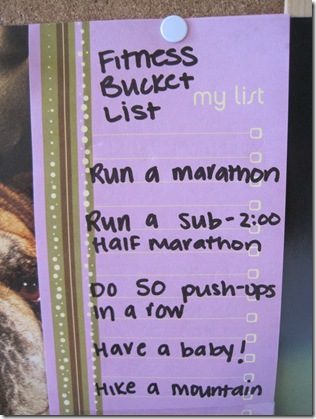 Fitness
Bucket
List
my list
Run a marathon
Run a sub-2:00
Half marathon
Do 50 push-ups
in a row
Have a baby!
Hike a mountain